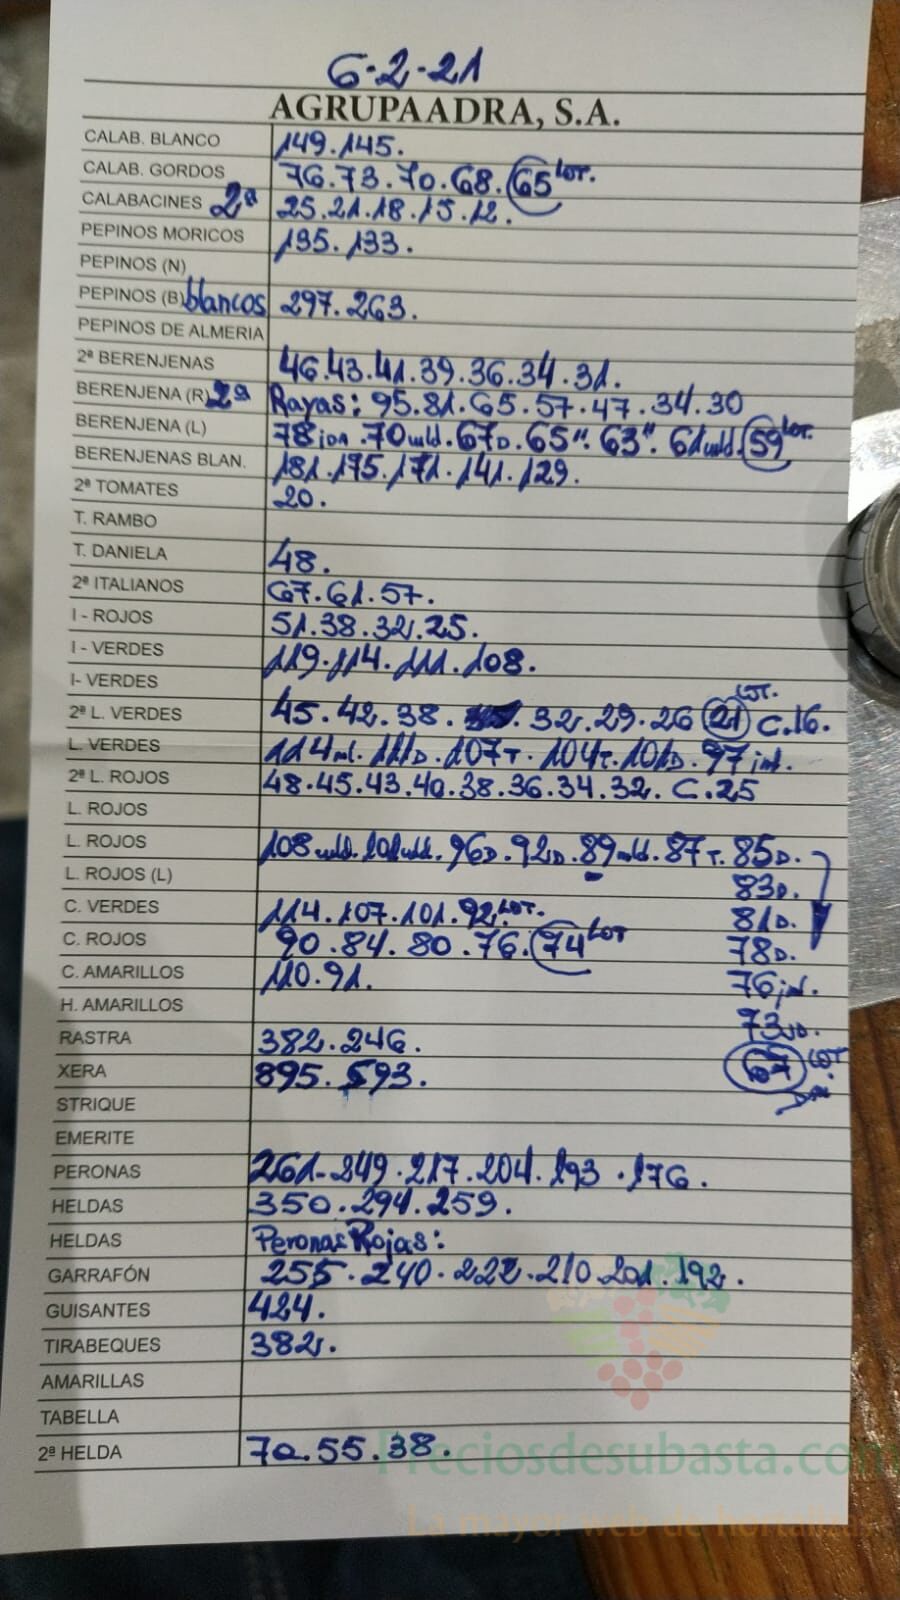 6-2-21
AGRUPAADRA, S.A.
CALAB. BLANCO 149.145.
CALAB. GORDOS 76.73.70.68.65 LOT.
CALABACINES 2ª 25.21.18.15.12.
PEPINOS MORICOS 135.133.
PEPINOS (N)
PEPINOS (B) blancos 297.263.
PEPINOS DE ALMERIA
2ª BERENJENAS 46.43.41.39.36.34.31.
BERENJENA (R) 2ª Rayas: 95.81.65.57.47.34.30
BERENJENA (L) 78 .70 .67D.65".63".61 .59 LOT.
BERENJENAS BLAN. 181.175.171.141.129.
2ª TOMATES 20.
T. RAMBO
T. DANIELA 48.
2ª ITALIANOS 67.61.57.
I - ROJOS 51.38.32.25.
I - VERDES 119.114.111.108.
I- VERDES
2ª L. VERDES 45.42.38. .32.29.26 21 LOT. C.16.
L. VERDES 114ml.111D.107T.104T.101D.97 .
2ª L. ROJOS 48.45.43.40.38.36.34.32. C.25
L. ROJOS
L. ROJOS 108 .101 .96D.92D.89 .87T.85D.
L. ROJOS (L) 83D.
C. VERDES 114.107.101.92 LOT. 81D.
C. ROJOS 90.84.80.76.74 LOT 78D.
C. AMARILLOS 110.91. 76 .
H. AMARILLOS 73 .
RASTRA 382.246.
XERA 895.593. 67 LOT.
STRIQUE
EMERITE
PERONAS 261-249.217.204.193.176.
HELDAS 350.294.259.
HELDAS Peronas Rojas:
GARRAFÓN 255.240.222.210.201.192.
GUISANTES 424.
TIRABEQUES 382.
AMARILLAS
TABELLA
2ª HELDA 70.55.38.
Preciosdesubasta.com
La mayor web de hortalizas